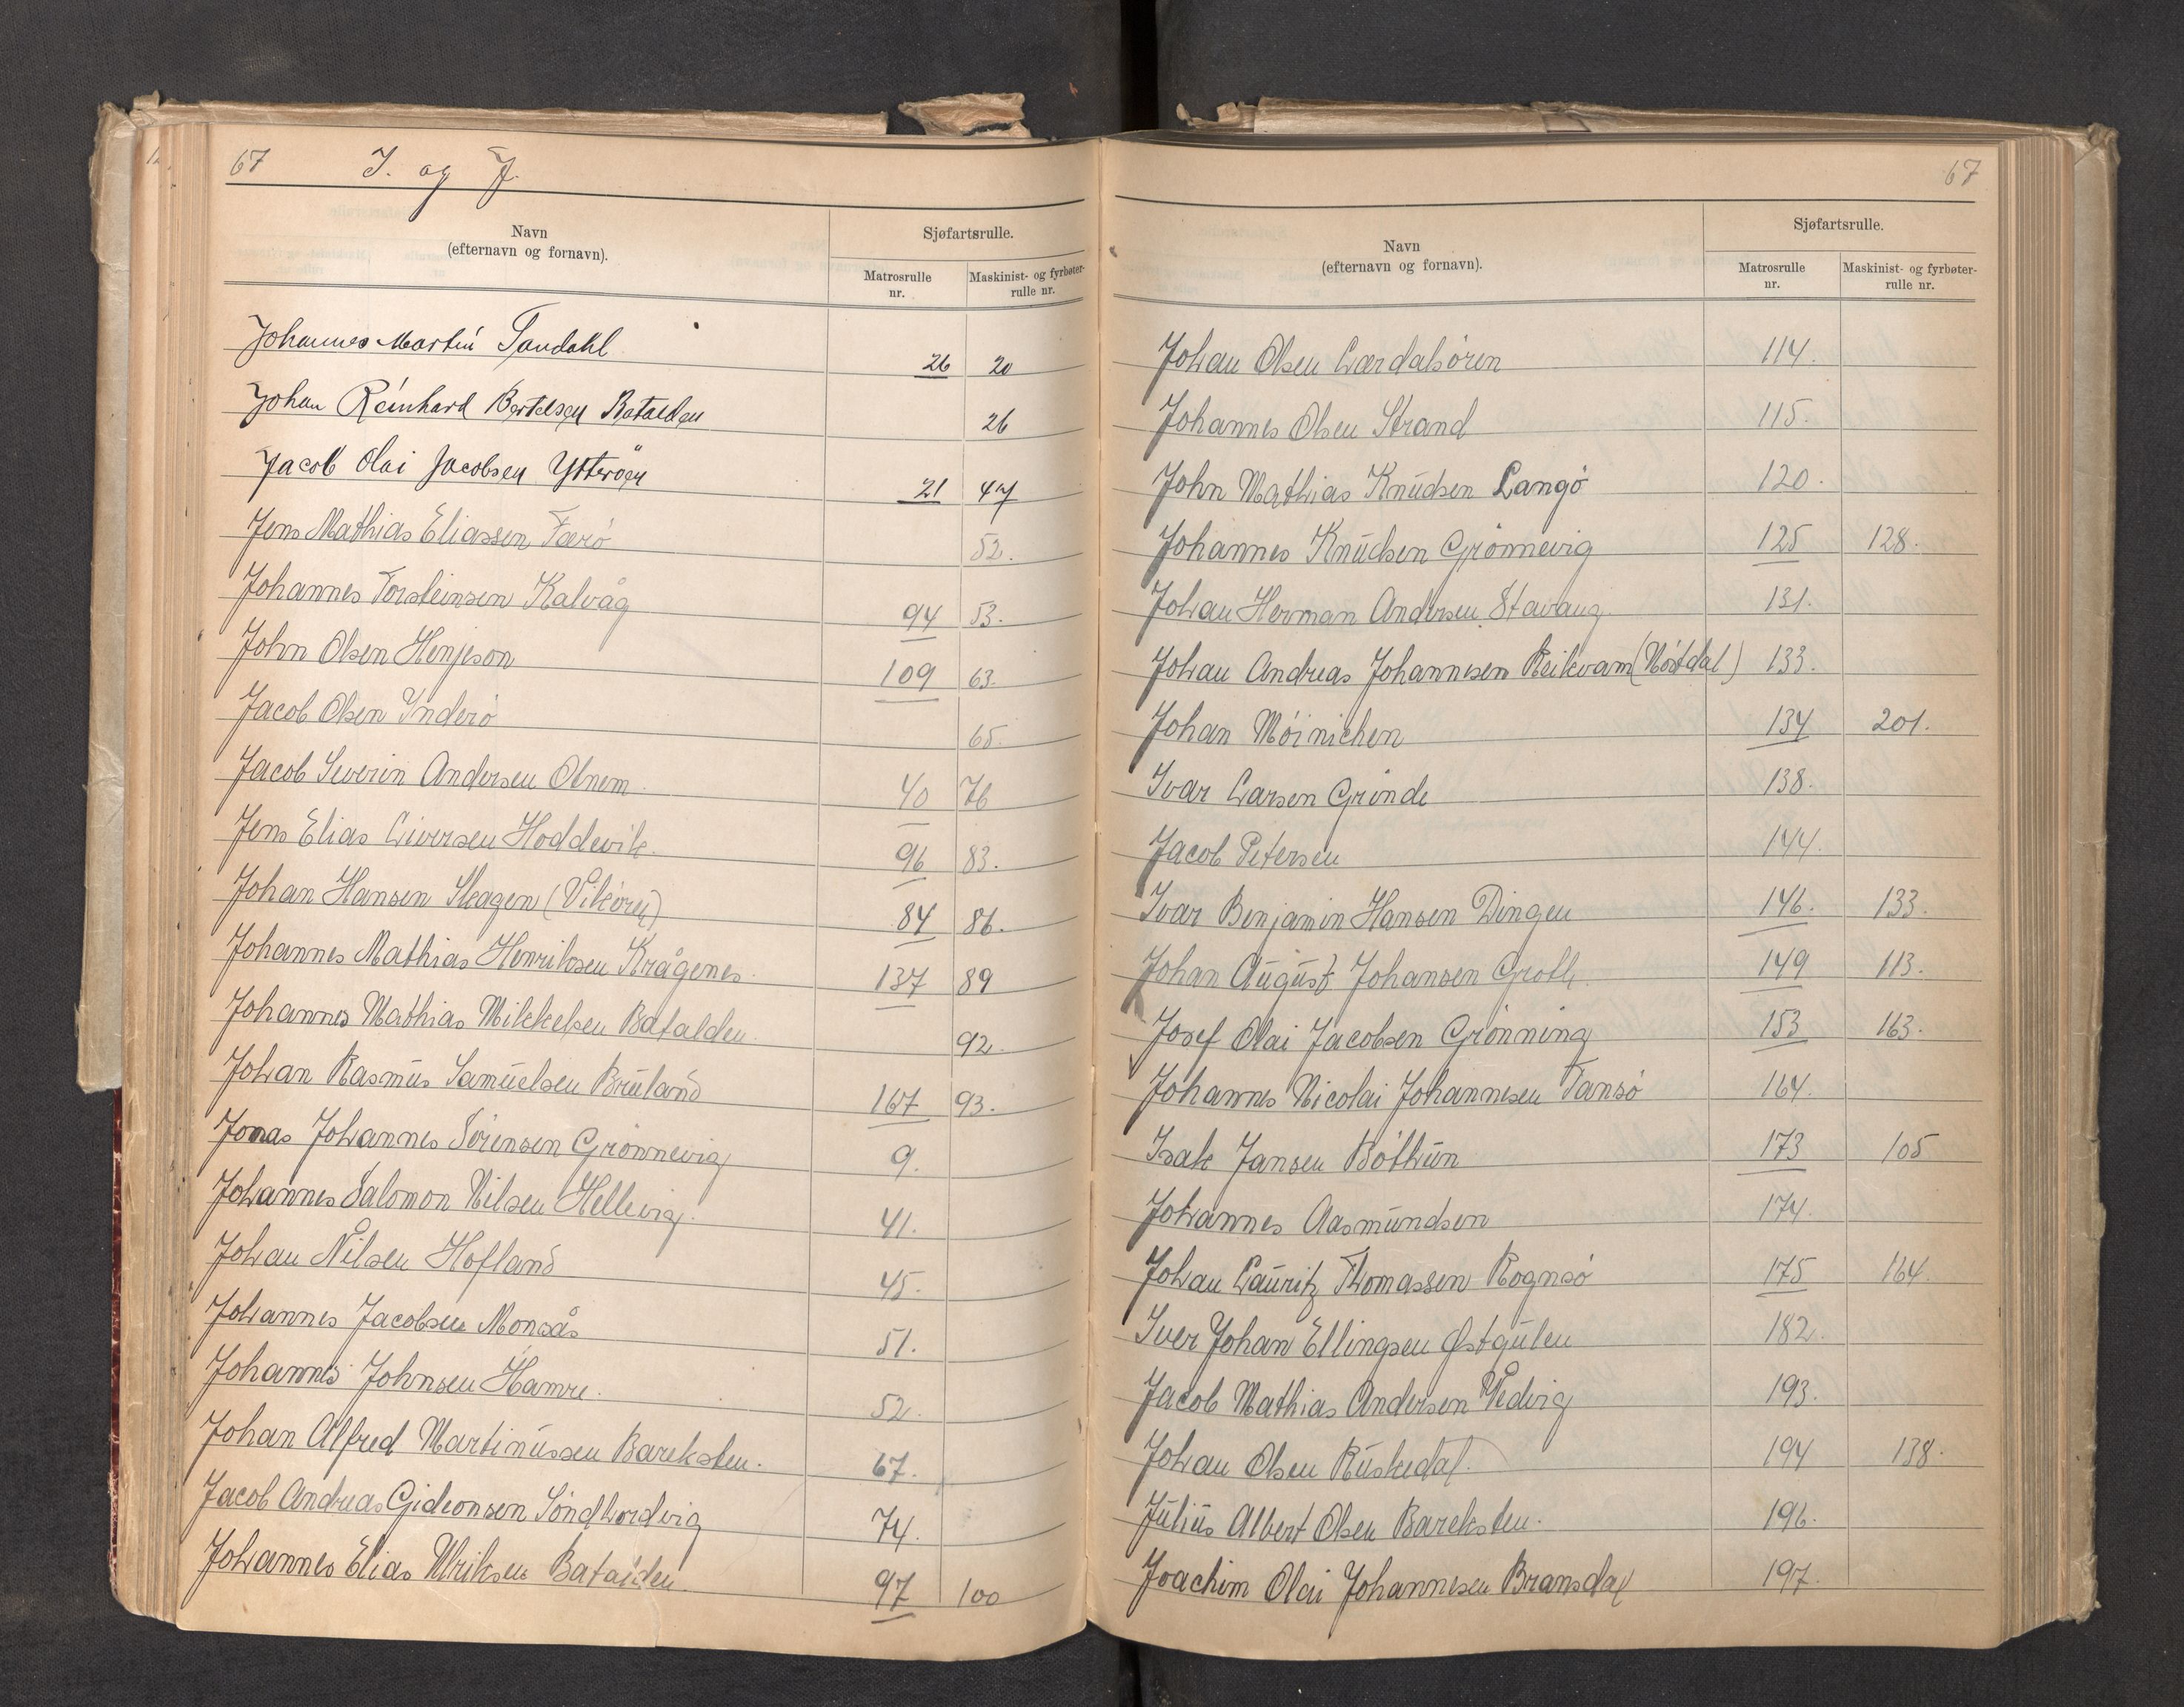 67 I. og J.
Navn
(efternavn og fornavn).
Sjøfartsrulle.
Matrosrulle
nr.
Maskinist- og fyrbøter-
rulle nr.
Johannes Martin Tandahl 26 20
Johan Reinhard Bertelsen Batalden 26
Jacob Olai Jacobsen Ytterøen 21 47
Jens Mathias Eliassen Færö 52.
Johannes Torsteinsen Kalvåg 94 53.
John Olsen Henjeson 109 63.
Jacob Olsen Inderö 65.
Jacob Severin Andersen Olnem 40 76
Jens Elias Siversen Hoddevik. 96 83.
Johan Hansen Skagen (Viköry) 84 86.
Johannes Mathias Henriksen Krågenes. 137 89
Johannes Mathias Mikkelsen Batalden. 92.
Johan Rasmus Samuelsen Bruland 167 93.
Jonas Johannes Sörensen Grönnevig 9.
Johannes Salomon Nilsen Hellevig. 41.
Johan Nilsen Hofland 45.
Johannes Jacobsen Monsås 51.
Johannes Johnsen Hamre. 52.
Johan Alfred Martinussen Bareksten. 67.
Jacob Andreas Gideonsen Söndhordvig 74.
Johannes Elias Ulriksen Batalden 97 100
67
Navn
(efternavn og fornavn).
Sjøfartsrulle.
Matrosrulle
nr.
Maskinist- og fyrbøter-
rulle nr.
Johan Olsen Lærdalsören 114.
Johannes Olsen Strand 115.
John Mathias Knudsen Langö 120.
Johannes Knudsen Grönnevig 125 128.
Johan Herman Andersen Stavang. 131.
Johan Andreas Johannesen Reikvam (Nöstdal) 133.
Johan Möinichen 134 201.
Ivar Larsen Grinde 138.
Jacob Petersen 144.
Ivar Benjamin Hansen Dingen 146. 133.
Johan August Johansen Groth. 149 113.
Josef Olai Jacobsen Grönning 153 163.
Johannes Nicolai Johannesen Tansö 164.
Isak Jansen Böthun 173 105
Johannes Aasmundsen 174.
Johan Lauritz Thomassen Rognsö 175 164.
Iver Johan Ellingsen Østgulen 182.
Jacob Mathias Andersen Vedvig 193.
Johan Olsen Ruskedal. 194 138.
Julius Albert Olsen Bareksten. 196.
Joachim Olai Johannesen Bransdal 197.